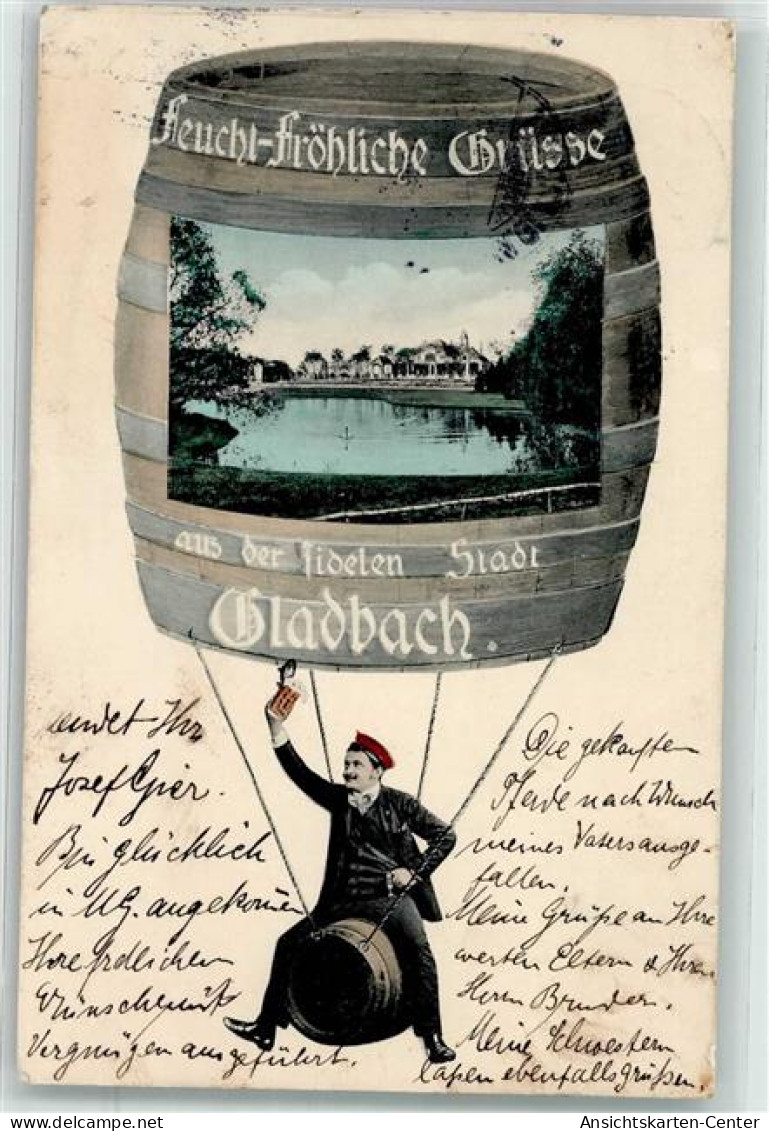 Feucht-Fröhliche Grüsse
aus der fidelen Stadt
Gladbach.
sendet Ihr
Josef Gier.
Bin glücklich
in M.G. angekom̅en
Ihre frdlichen
Wünsche mit
Vergnügen ausgeführt.
Die gekauften
Pferde nach Wunsch
meines Vaters ausge-
fallen.
Meine Grüße an Ihre
werten Eltern & Ihren
Herrn Bruder.
Meine Schwestern
laßen ebenfalls grüßen.
Ansichtskarten-Center